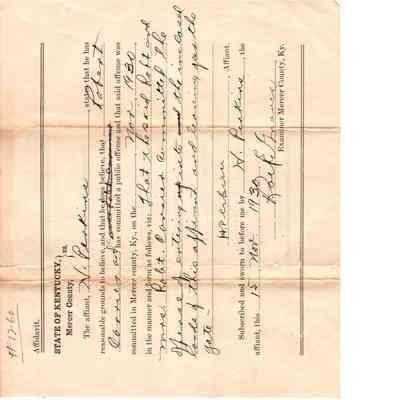 # 1260
Affidavit.
STATE OF KENTUCKY, } ss.
Mercer County,
The affiant, H. Perkins states that he has
reasonable grounds to believe, and that he does believe, that Robert
Carnes
has committed a public offense and that said offense was
committed in Mercer county, Ky., on the Nov. 1930
in the manner and form as follows, viz: that the said Robt and
Mrs. Robt Carnes committed the
offense of entering upon the inclosed
lands of this affiant and leaving gas the
gate—
H Perkins
Affiant.
Subscribed and sworn to before me by H. Perkins, the
affiant, this 15 Nov. 1930
Examiner Mercer County, Ky.